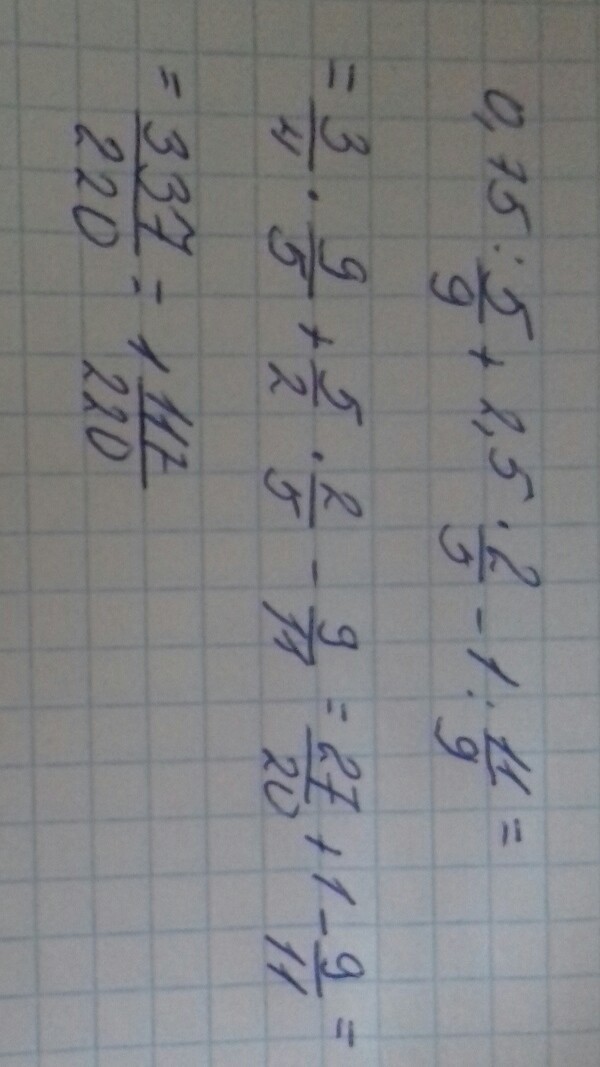 0,75 : 5/9 + 2,5 · 2/5 - 1 : 11/9 =
= 3/4 · 9/5 + 5/2 · 2/5 - 9/11 = 27/20 + 1 - 9/11 =
= 337/220 = 1 117/220